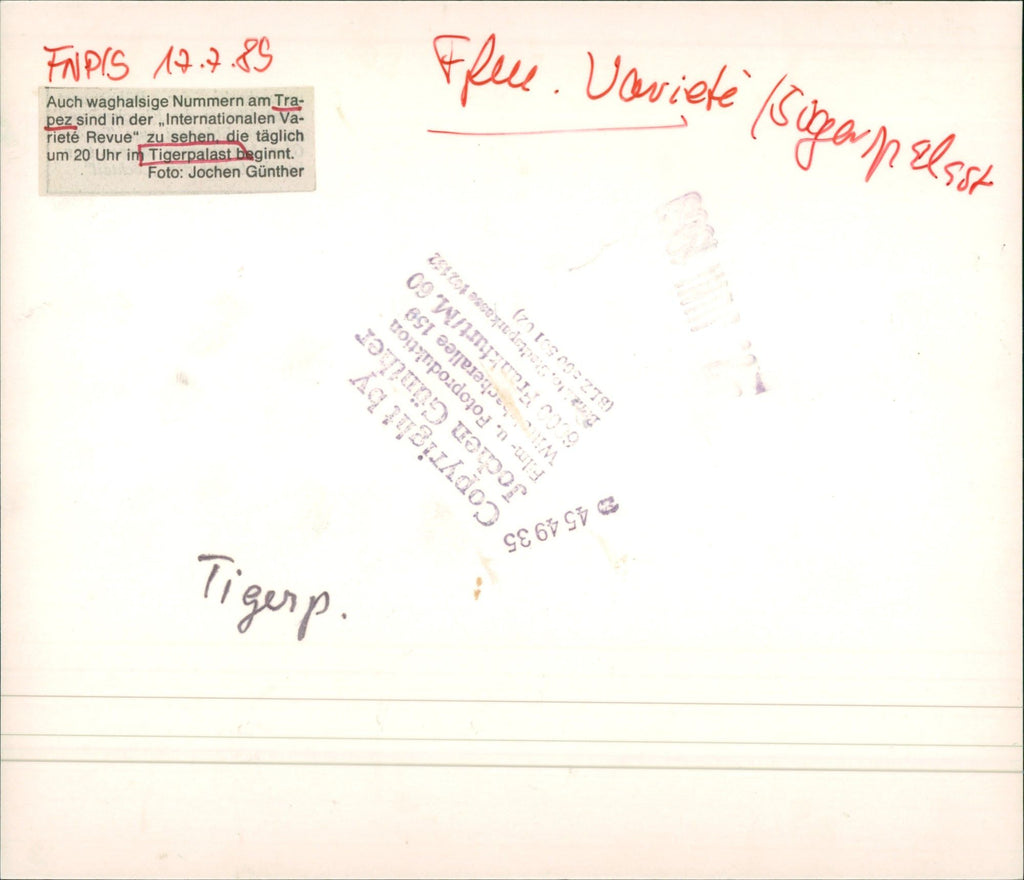 FNP/S 17.7.89
Auch waghalsige Nummern am Tra-
pez sind in der „Internationalen Va-
rieté Revue“ zu sehen, die täglich
um 20 Uhr im Tigerpalast beginnt.
Foto: Jochen Günther
Ffm. Varieté / Tigerpalast
Copyright by
Jochen Günther
Film- u. Fotoproduktion
159
Frankfurt/M. 60
Stadtsparkasse
(BLZ 500 501 02)
45 49 35
Tigerp.